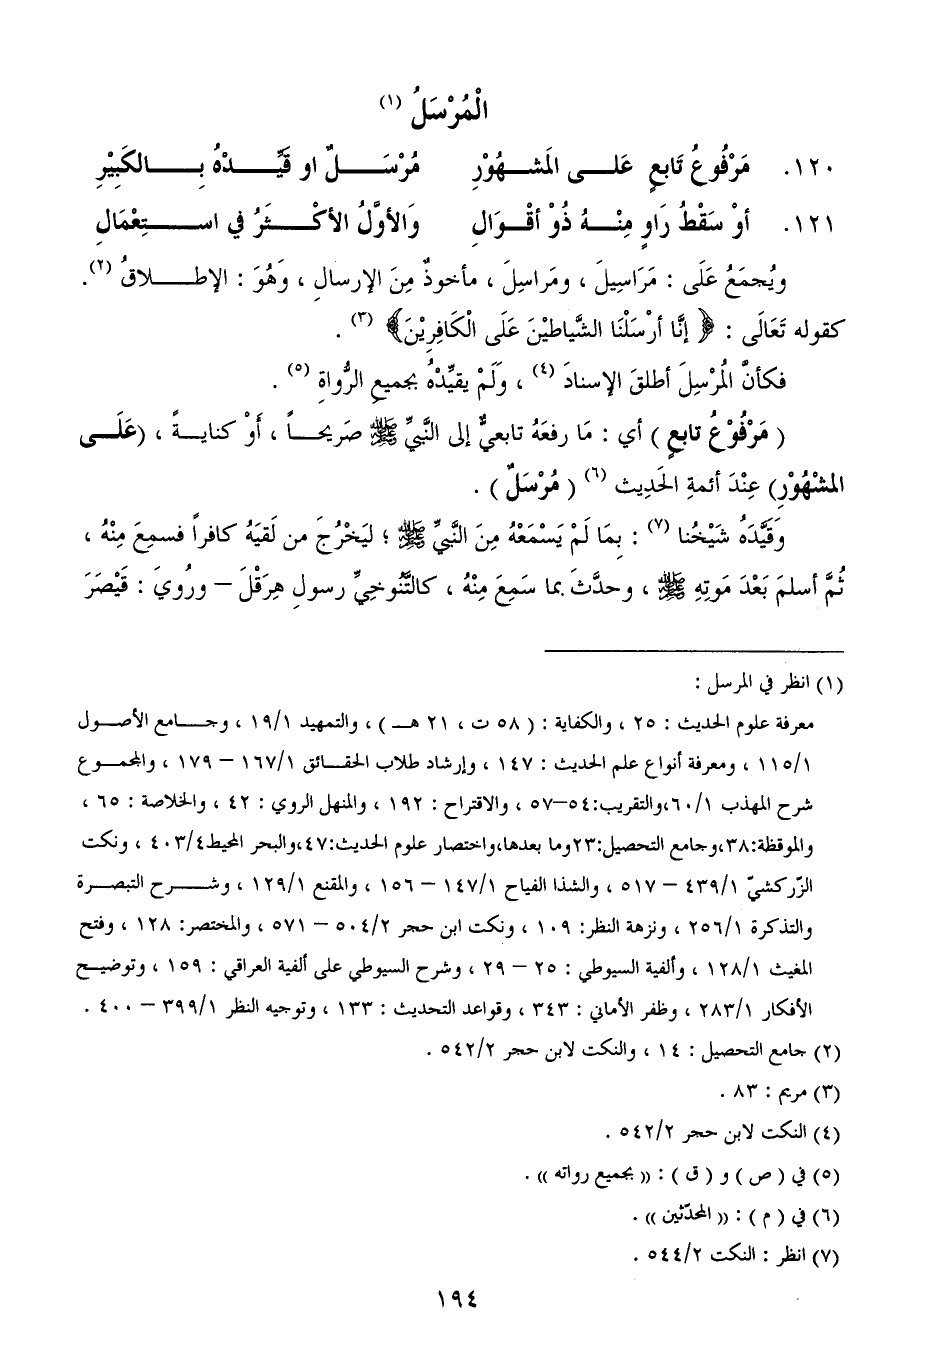 الْمُرْسَلُ (١)
١٢٠. مَرْفُوعُ تَابعٍ عَلَى المَشهُوْرِ مُرْسَلٌ او قَيِّدْهُ بِالكَبِيْرِ
١٢١. أوْ سَقْطُ رَاوٍ مِنْهُ ذُوْ أقْوَالِ وَالأوَّلُ الأكْثَرُ في استِعْمَالِ
ويُجمَعُ عَلَى : مَرَاسِيلَ ، ومَراسِلَ ، مأخوذٌ مِنَ الإرسالِ ، وَهُوَ : الإطلاقُ (٢).
كقوله تَعَالَى : ﴿ إنَّا أرْسَلْنَا الشَّياطيْنَ عَلَى الْكَافِرِيْنَ﴾ (٣) .
فكأنَّ الْمُرْسِلَ أطلقَ الإسنادَ (٤) ، وَلَمْ يقيِّدْهُ بجميعِ الرُّواةِ (٥) .
( مَرْفُوْعُ تابعٍ ) أي : مَا رفعَهُ تابعيٌّ إلى النَّبيِّ ﷺ صَريحاً ، أَوْ كنايةً ، (عَلَى
المشْهُوْرِ) عِنْدَ أئمةِ الحَدِيث (٦) ( مُرْسَلٌ ) .
وَقَيَّدَهُ شَيْخُنا (٧) : بِمَا لَمْ يَسْمَعْهُ مِنَ النَّبيِّ ﷺ ؛ ليَخْرُجَ من لَقيَهُ كافراً فسمِعَ مِنْهُ ،
ثُمَّ أسلمَ بَعْدَ مَوتِهِ ﷺ ، وحدَّثَ بما سَمِعَ مِنْهُ ، كالتَّنُوخيِّ رسولِ هِرَقْلَ – ورُويَ : قَيْصَرَ
(١) انظر في المرسل :
معرفة علوم الحديث : ٢٥ ، والكفاية : ( ٥٨ ت ، ٢١ هـ ) ، والتمهيد ١٩/١ ، وجامع الأصول
١١٥/١ ، ومعرفة أنواع علم الحديث : ١٤٧ ، وإرشاد طلاب الحقائق ١٦٧/١ – ١٧٩ ، والمجموع
شرح المهذب ٦٠/١،والتقريب:٥٤–٥٧ ، والاقتراح : ١٩٢ ، والمنهل الروي : ٤٢ ، والخلاصة : ٦٥ ،
والموقظة:٣٨،وجامع التحصيل:٢٣وما بعدها،واختصار علوم الحديث:٤٧،والبحر المحيط٤٠٣/٤ ، ونكت
الزّركشيّ ٤٣٩/١ – ٥١٧ ، والشذا الفياح ١٤٧/١ – ١٥٦ ، والمقنع ١٢٩/١ ، وشرح التبصرة
والتذكرة ٢٥٦/١ ، ونزهة النظر: ١٠٩ ، ونكت ابن حجر ٥٠٤/٢ – ٥٧١ ، والمختصر: ١٢٨ ، وفتح
المغيث ١٢٨/١ ، وألفية السيوطي : ٢٥ – ٢٩ ، وشرح السيوطي على ألفية العراقي : ١٥٩ ، وتوضيح
الأفكار ٢٨٣/١ ، وظفر الأماني : ٣٤٣ ، وقواعد التحديث : ١٣٣ ، وتوجيه النظر ٣٩٩/١ – ٤٠٠ .
(٢) جامع التحصيل : ١٤ ، والنكت لابن حجر ٥٤٢/٢ .
(٣) مريم : ٨٣ .
(٤) النكت لابن حجر ٥٤٢/٢ .
(٥) في ( ص ) و ( ق ) : (( بجميع رواته )) .
(٦) في ( م ) : (( المحدّثين )) .
(٧) انظر : النكت ٥٤٤/٢ .
١٩٤